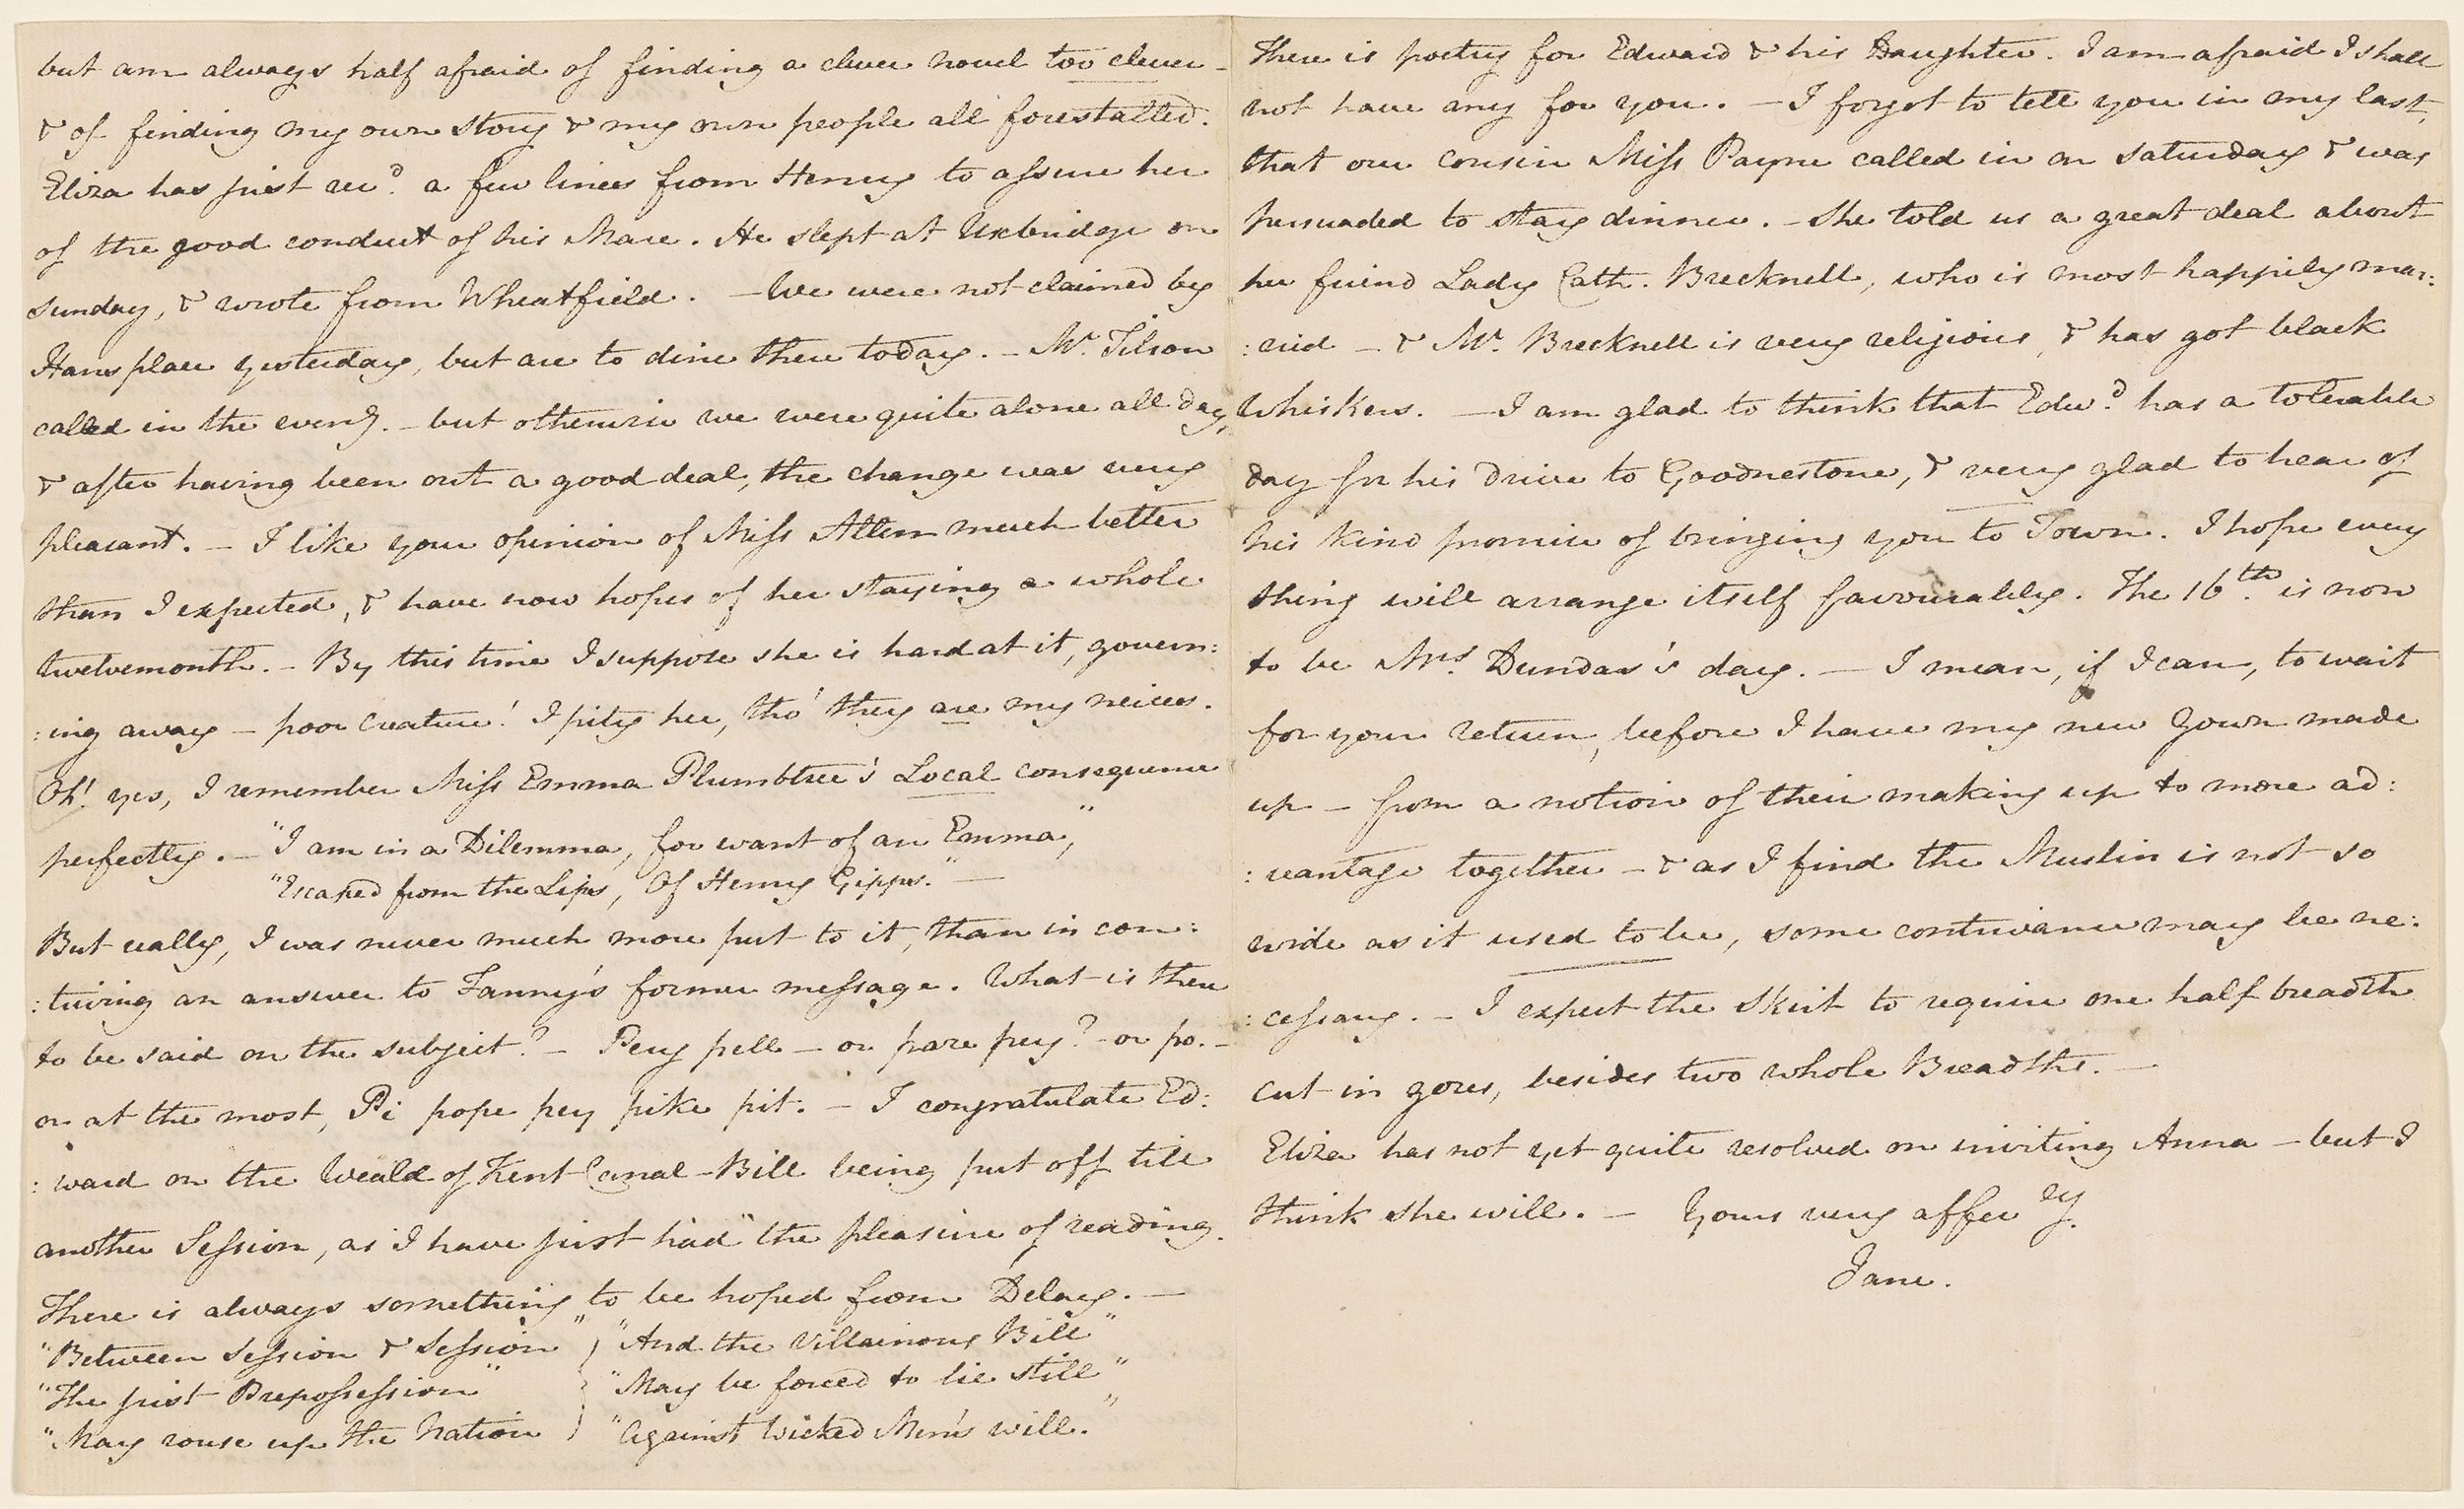 but am always half afraid of finding a clever novel too clever -
& of finding my own story & my own people all forestalled.
Eliza has just rec^d. a few lines from Henry to assure her
of the good conduct of his Mare. He slept at Uxbridge on
Sunday, & wrote from Wheatfield. - We were not claimed by
Hans place yesterday, but are to dine there today. - Mr. Tilson
called in the eveng. - but otherwise we were quite alone all day,
& after having been out a good deal, the change was very
pleasant. - I like your opinion of Miss Atten much better
than I expected, & have now hopes of her staying a whole
twelvemonth. - By this time I suppose she is hard at it, govern:
:ing away - poor creature! I pity her, tho' they are my neices.
Oh! yes, I remember Miss Emma Plumbtree's Local consequence
perfectly. - "I am in a Dilemma, for want of an Emma,"
"Escaped from the Lips, Of Henry Gipps." -
But really, I was never much more put to it, than in con:
:triving an answer to Fanny's former message. What is there
to be said on the subject? - Pery pell - or pare pey? - or po. -
or at the most, Pi pope pey pike pit. - I congratulate Ed:
:ward on the Weald of Kent Canal-Bill being put off till
another Session, as I have just had the pleasure of reading.
There is always something to be hoped from Delay. -
"Between Session & Session" "And the Villainous Bill"
"The just Prepossession" "May be forced to lie still"
"May rouse up the Nation "Against Wicked Men's will."
There is poetry for Edward & his Daughter. I am afraid I shall
not have any for you. - I forgot to tell you in my last,
that our cousin Miss Payne called in on Saturday & was
persuaded to stay dinner. - She told us a great deal about
her friend Lady Cath. Brecknell, who is most happily mar:
:ried - & Mr. Brecknell is very religious, & has got black
Whiskers. - I am glad to think that Edw^d. has a tolerable
day for his drive to Goodnestone, & very glad to hear of
his kind promise of bringing you to Town. I hope every
thing will arrange itself favourably. The 16th. is now
to be Mrs. Dundas's day. - I mean, if I can, to wait
for your return, before I have my new Gown made
up - from a notion of their making up to more ad:
:vantage together - & as I find the Muslin is not so
wide as it used to be, some contrivance may be ne:
:cessary. - I expect the Skirt to require one half breadth
cut in gores, besides two whole Breadths. -
Eliza has not yet quite resolved on inviting Anna - but I
think she will. - Yours very affec^ly.
Jane.